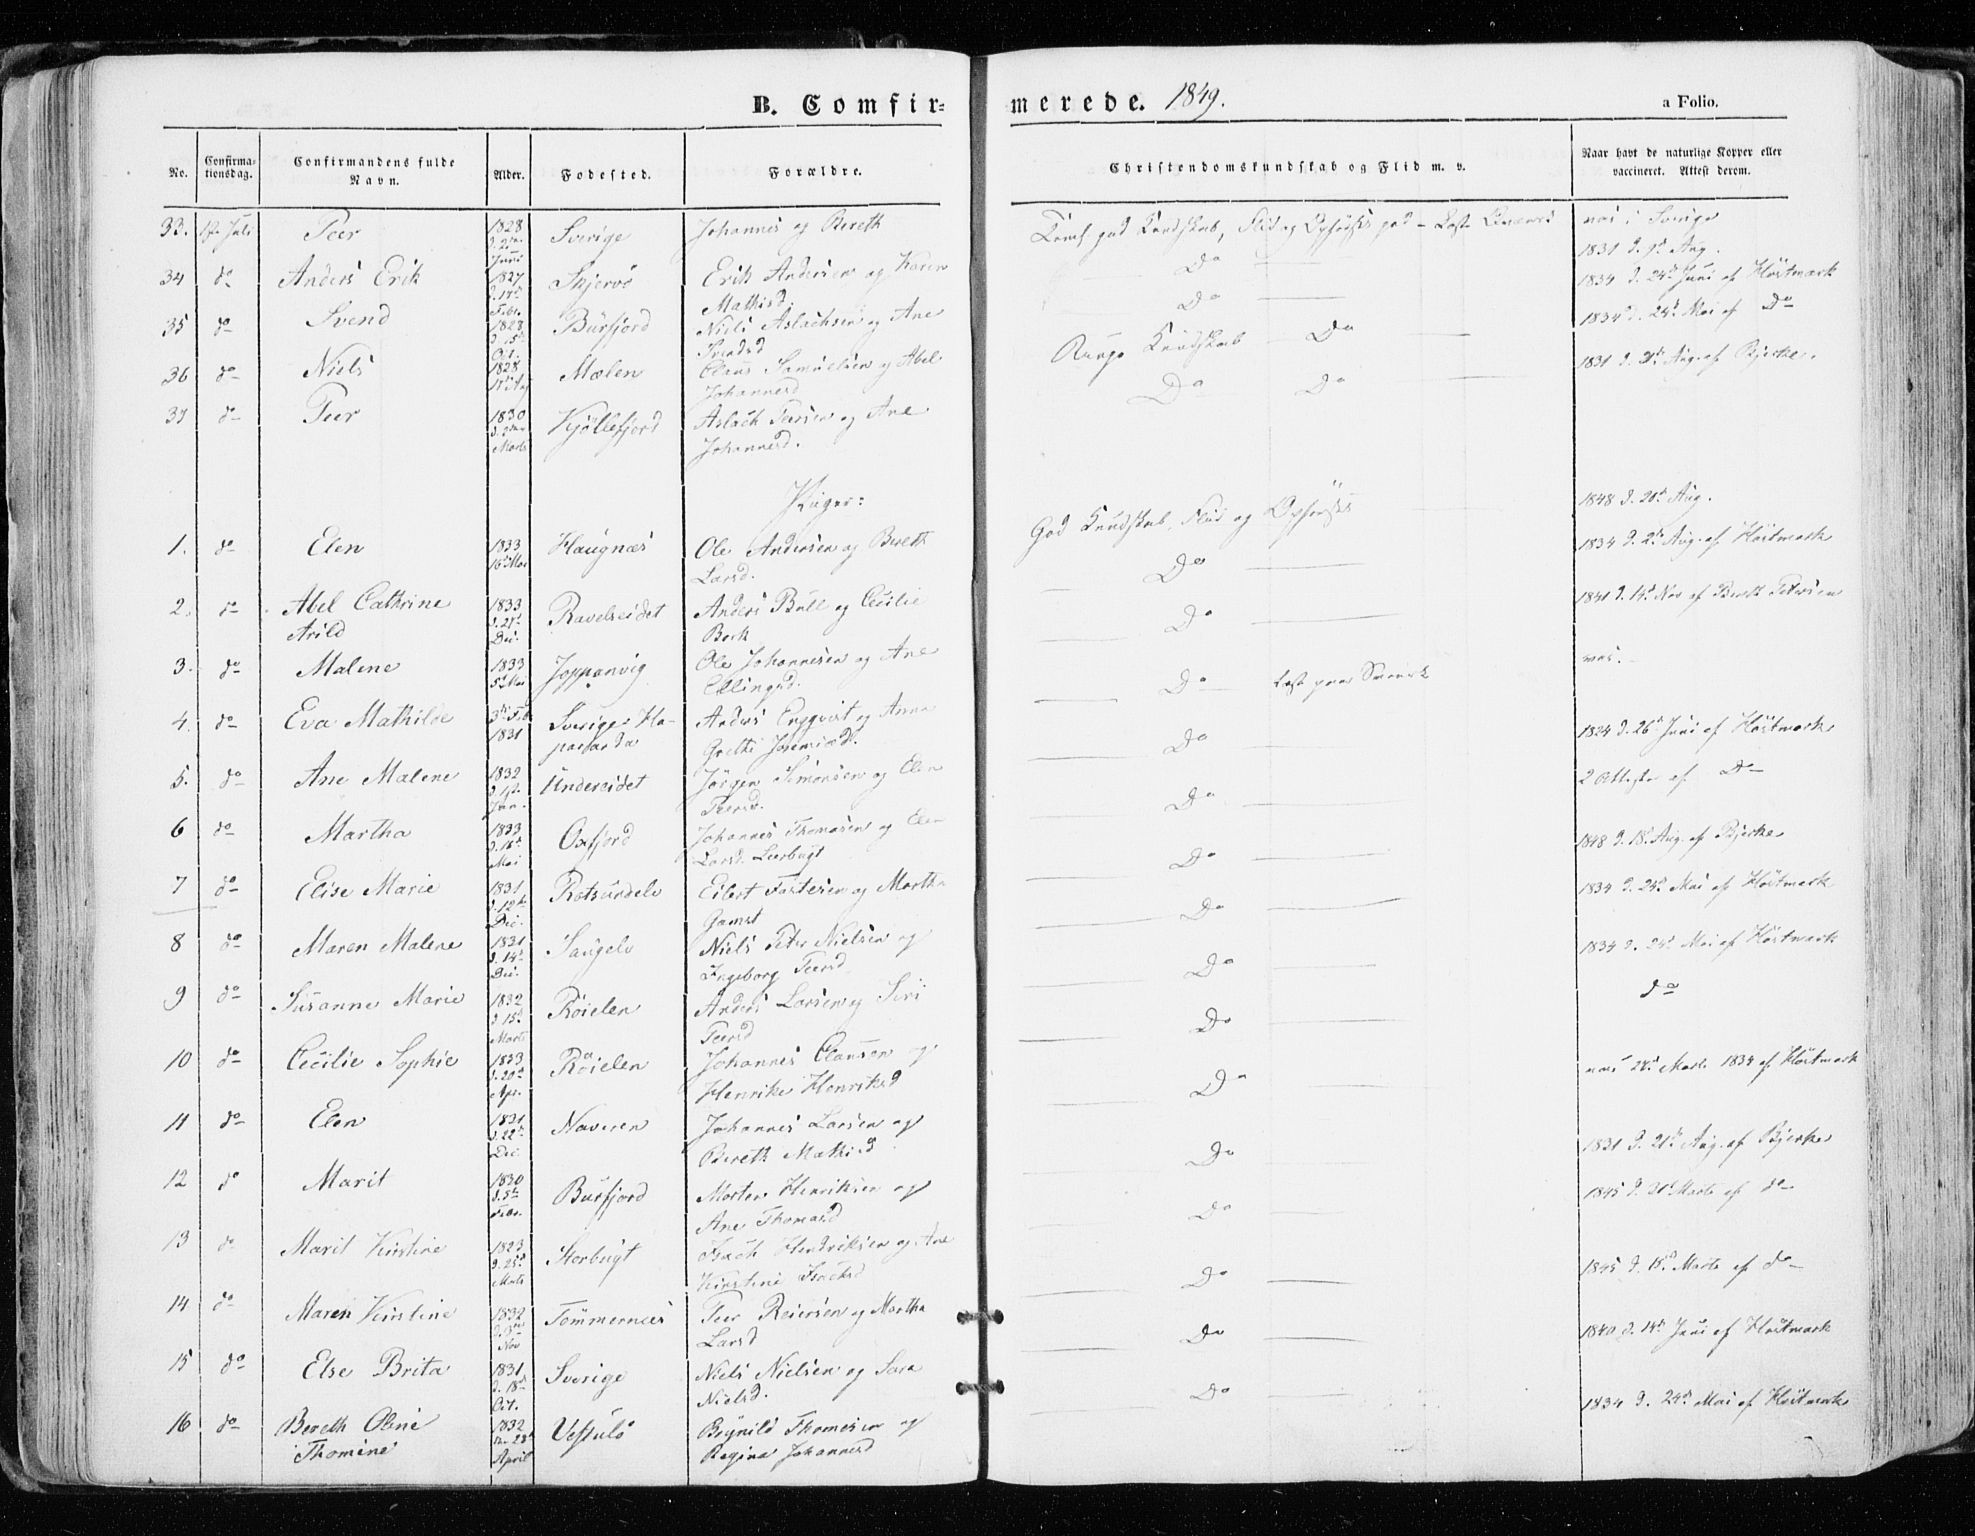 B. Comfir-
merede. 1849.
a Folio.
No.
Confirma-
tionsdag.
Confirmandens fulde
Navn.
Alder.
Fodested.
Forældre.
Christendomskundskab og Flid m. v.
Naar havt de naturlige Kopper eller
vaccineret. Attest derom.
33. Juli Peer 1828 Sverige Johannes og Bereth
Juni
34 do Anders Erik 1827 Skjervö Erik Andersen og Karen
Febr. Mathisd.
35 do Svend 1828 Burfjord Niels Aslachsen og Ane
Oct. Svendsd
36 do Niels 1828 Mælen Claus Samuelsen og Abel
Johannesd
37 do Peer 1830 Kjöllefjord Aslach Peersen og Ane
Marts Johannesd.
Piger:
1. do Elen 1833 Haugnæs Ole Andersen og Bereth
16 Mai Larsd.
2. do Abel Cathrine 1833 Ravelseidet Anders Bull og Cecilie
Arild Dec. Beck
3. do Malene 1833 Joppanvig Ole Johannesen og Ane
5 Mai Ellingsd.
4. do Eva Mathilde 3 Feb Sverige: Ha-
1831 paranda
Anders Engqvist og Anna
Grethe Jeremiasd.
5. do Ane Malene 1832 Undereidet Jörgen Simonsen og Elen
Jan. Peersd.
6 do Martha 1833 Oxfjord Johannes Thomasen og Elen
Mai Larsd. Leerbugt
7 do Elise Marie 1831 Rotsundelv Eilert Fostesen og Martha
d. 12 Dec. Gamst
8 do Maren Malene 1831 Saugelv Niels Peter Nielsen og
d. 14 Dec. Ingeborg Peersd
9 do Susanne Marie 1832 Röielen Anders Larsen og Siri
d. 15 Marts Peersd
10 do Cecilie Sophie 1833 Röielen Johannes Clausen og
d. 20 Apr. Henrike Henriksd
11 do Elen 1831 Naveren Johannes Larsen og
d. 22 Dec. Bereth Mathisd
12 do Marit 1830 Burfjord Morten Henriksen og
d. 5 Febr. Ane Thomasd
13 do Marit Kirstine 1823 Storbugt Isach Hendriksen og Ane
d. 25 Marts Kirstine Isachsd
14 do Maren Kirstine 1832 Tömmernæs Peer Reiersen og Martha
Nov Larsd
15 do Else Brita 1831 Sverige Niels Nielsen og Sara
d. 18 Oct. Nielsd.
16 do Bereth Oline 1832 Vestulö Brynild Thomesen og
Thomine 28 April Regina Johannesd
god Kundskab, Flid og
Do
Do
Ringe Kundskab Do
Do Do
God Kundskab, Flid og Opförsel
Do
Do
Do Læst paa Svensk
Do
Do
Do
Do
Do
Do
Do
Do
Do
Do
Do
Do
i Sverige
1831 d. 9 Aug.
1834 d. 24 Juni af Höstmark
1834 d. 24 Mai af Do
1831 d. 21 Aug. af Bjerke.
1848 d. 20 Aug.
1834 d. 2 Aug. af Höstmark
1841 d. 14 Nov af Berett Petersen
1824 d. 26 Juni af Höstmark
2 Attester af Do
1848 d. 18 Aug. af Bjerke
1834 d. 24 Mai af Höstmark
1834 d. 24 Mai af Höstmark
do
24 Marts 1834 af Höstmark
1831 d. 21 Aug. af Bjerke
1845 d. Marts af do
1845 d. 15 Marts af do
1840 d. 14 Juni af Höstmark
1834 d. 24 Mai af Höstmark